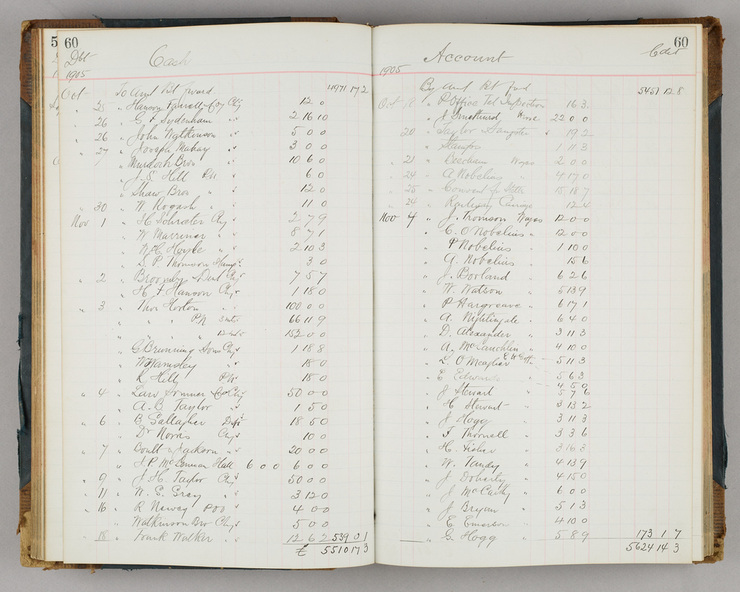 5 60
Dbt Cash
1905
Oct To Amt Bt forward 4971 17 2
" 25 " Harvey Farrell & Coy Chq 12 0
" 26 " E. J. Sydenham " 2 16 10
" 26 " John Watkinson " 5 0 0
" 27 " Joseph " 3 0 0
" Murdoch Bros " 10 6 0
" J. E. Hill 6 0
" Shaw Bros " 12 0
" 30 " W. Rogash " " 11 0
Nov 1 " H. Schroeter Chq 2 7 9
" W. Warriner " 8 7 1
" W. H. Hoyle " " 2 10 3
" P. Thomson 3 0
" 2 " Chq 7 5 7
" H. J. Hanson Chq 1 18 0
" 3 " Thos Horton " " 100 00 0
" " P/N 66 11 9
" " 152 0 0
" G. Brunning & Sons Chq 1 18 8
" W. Wamsley " 18 0
" R. Hill P.N. 18 0
" 4 " Law Somner & Co Chq 50 0 0
" A. C. Taylor " " 1 5 0
" 6 " C. Gallagher 18 5 0
" D. Norris Chq 10 0
" 7 " Coult & Jackson " 20 0 0
" J. P. McConnon Hall 6 0 0 6 0 0
" 9 " J. H. Taylor Chq 50 0 0
" 11 " W. S. Gray " 3 12 0
" 16 " R. POO " 4 0 0
" Watkinson Bro Chq 5 0 0
" 18 " Frank Walker " " 12 6 2 539 0 1
£ 5510 17 3
Account Cdit 60
1905
By Amt Bt fwd 5451 12 8
Oct " P. Office Tel 16 3
" J. Horse 22 0 0
20 " Taylor Hampton " 19 2
" Stamps 1 11 3
" 21 " Wages 2 0 0
" 24 " A. Nobelius " 4 17 0
" 25 " 15 18 7
" 24 "
Nov 4 " J. Thomson Wages 12 0 0
" C. O. Nobelius " 12 0 0
" P. Nobelius " 1 10 0
" A. Nobelius " 15 6
" J. Borland " 6 2 6
" W. Watson " 5 13 9
" P. Hargreave " 6 17 1
" A. Nightingale " 6 4 0
" D. Alexander " 3 11 3
" A. McLauchlin " 4 10 0
" L. O'Meagher 5 11 3
" E. Edwards 5 6 3
4 5 0
" J. Stewart " 5 7 6
" H. Stewart " 3 13 2
" J. Hogg " 3 11 3
" J. Thornell " 3 3 6
" H. Fisher " 3 16 3
" W. Tandy " 4 13 9
" J. Doherty " 4 15 0
" J. McCarthy " 6 0 0
" J. Bryan " 5 1 3
" E. Emerson " 4 10 0
" G. Hogg " 5 8 9 173 1 7
5624 14 3